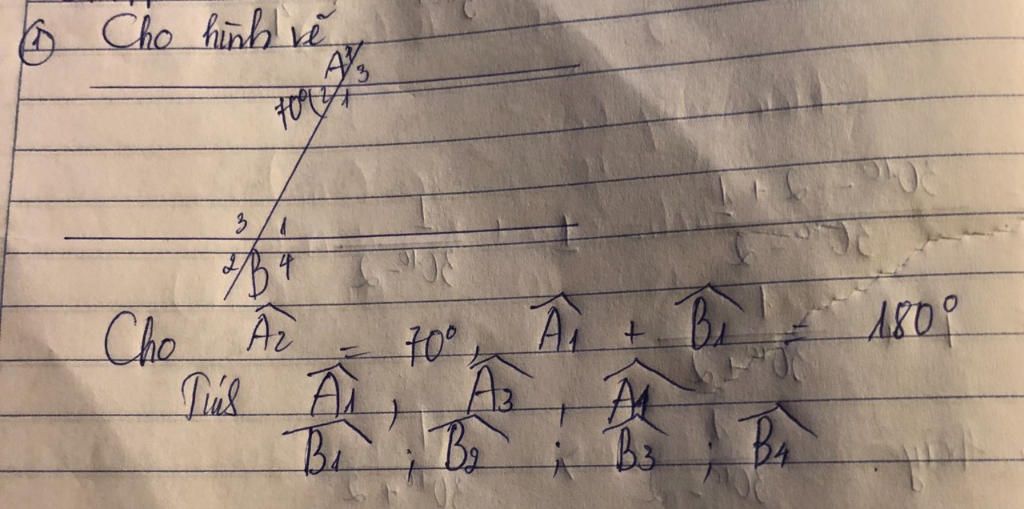 ① Cho hình vẽ
A 3
70° 2 1
3 1
2 B 4
Cho Â₂ = 70°, Â₁ + B̂₁ = 180°
Â₁, Â₃, Â₄
B̂₁; B̂₂; B̂₃; B̂₄